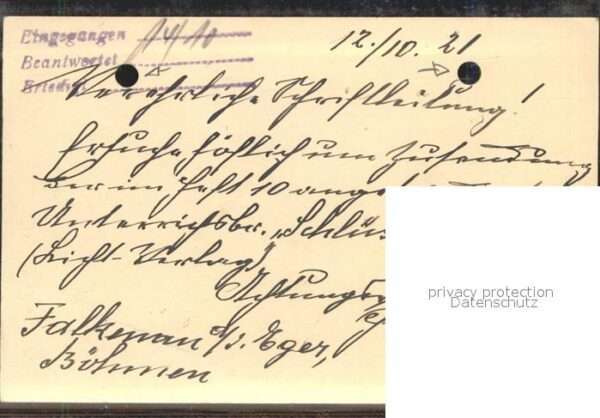 Eingegangen 14/10
12./10. 21
Beantwortet
Erledigt
Verehrliche Schriftleitung!
Ersuche höflich um Zusendung
der im Heft 10
Unterrichtsbr. „Schlüs
(Licht-Verlag)
Achtungs
Falkenau a/d. Eger,
Böhmen
privacy protection
Datenschutz